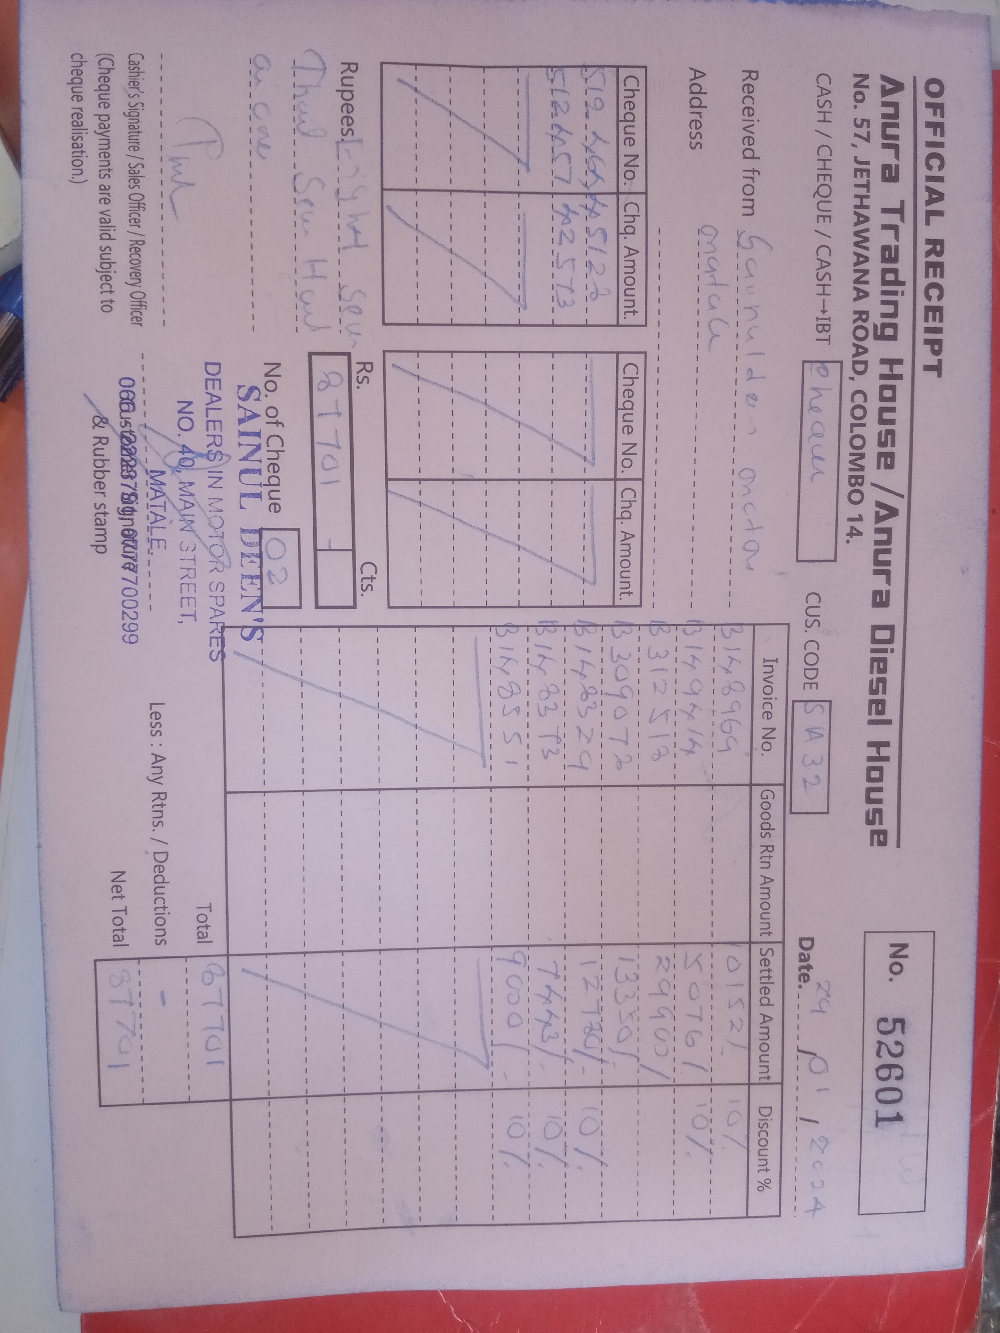 OFFICIAL RECEIPT
Anura Trading House / Anura Diesel House
No. 57, JETHAWANA ROAD, COLOMBO 14.
No. 52601
CASH / CHEQUE / CASH→IBT
CUS. CODE SA 32
Date. 29 / 01 / 2024
Received from
Address
Cheque No. Chq. Amount.
512 45122
512457 42573
Cheque No. Chq. Amount.
Invoice No. Goods Rtn Amount Settled Amount Discount %
B148969 10152/- 10%
B149414 5076/ 10%
B312518 29900/
B309078 13350/
B148329 12780/- 10%
B148373 7443/- 10%
B148551 9000/- 10%
Total 87701
Less : Any Rtns. / Deductions -
Net Total 87701
Rupees Eighty Seven
Thousand Seven Hundred
Rs. Cts.
87701 -
No. of Cheque 02
SAINUL DEEN'S
DEALERS IN MOTOR SPARES
NO. 40, MAIN STREET,
MATALE.
Customer Signature
& Rubber stamp
Cashier's Signature / Sales Officer / Recovery Officer
(Cheque payments are valid subject to
cheque realisation.)